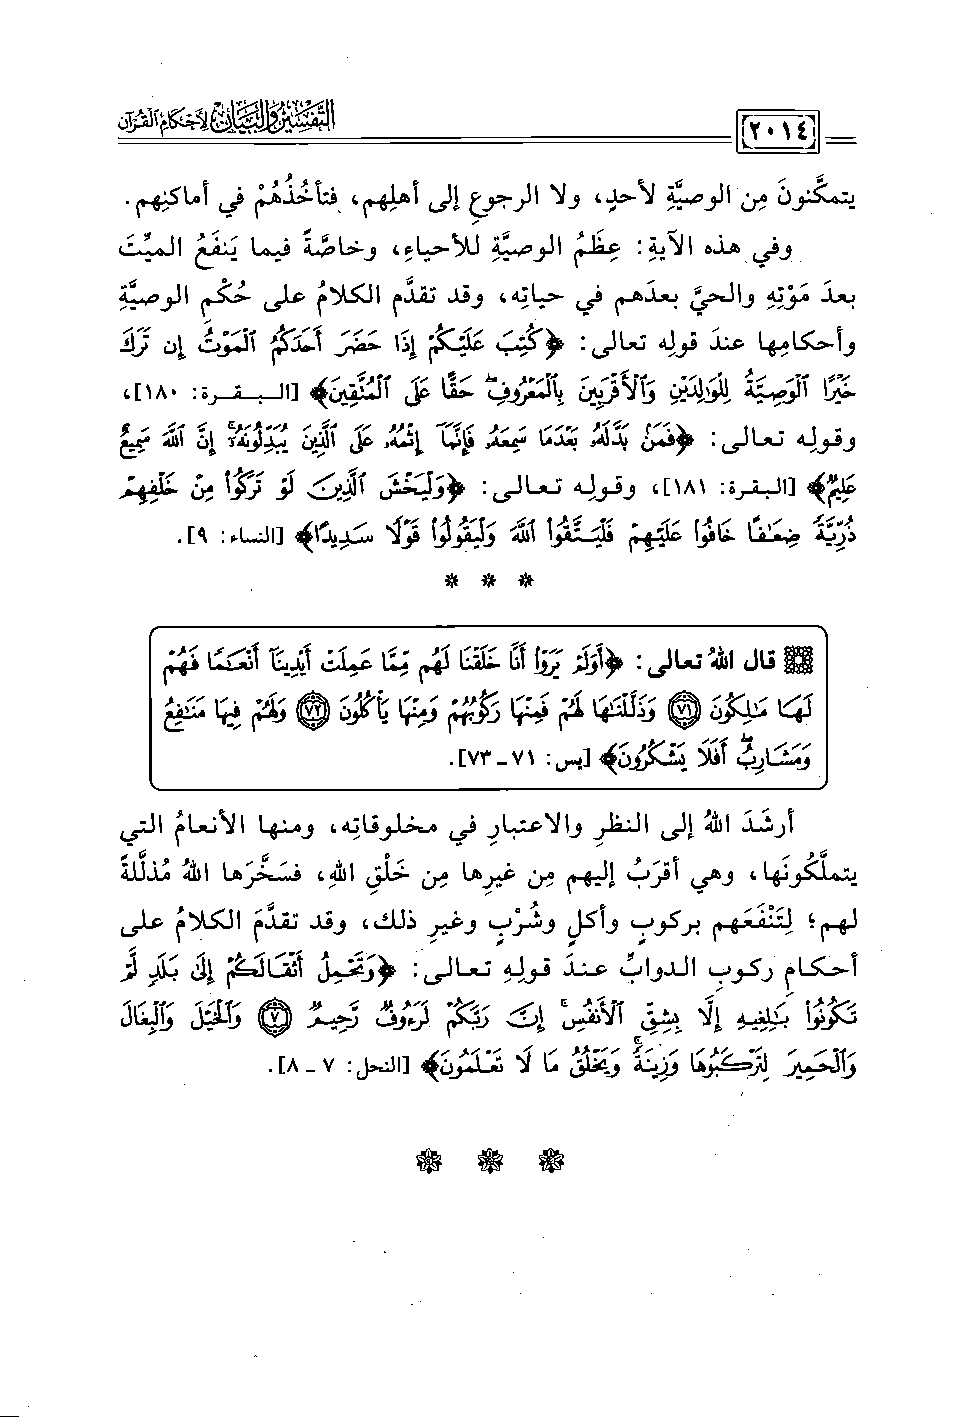 ٢٠١٤ التفسير والبيان لأحكام القرآن
يتمكَّنونَ مِن الوصيَّةِ لأحدٍ، ولا الرجوعِ إلى أهلِهم، فتَأخُذُهُمْ في أماكنِهم.
وفي هذه الآيةِ: عِظَمُ الوصيَّةِ للأحياءِ، وخاصَّةً فيما يَنفَعُ الميِّتَ
بعدَ مَوْتِهِ والحيَّ بعدَهم في حياتِه، وقد تقدَّم الكلامُ على حُكْمِ الوصيَّةِ
وأحكامِها عندَ قولِه تعالى: ﴿كُتِبَ عَلَيْكُمْ إِذَا حَضَرَ أَحَدَكُمُ ٱلْمَوْتُ إِن تَرَكَ
خَيْرًا ٱلْوَصِيَّةُ لِلْوَٰلِدَيْنِ وَٱلْأَقْرَبِينَ بِٱلْمَعْرُوفِ ۖ حَقًّا عَلَى ٱلْمُتَّقِينَ﴾ [البقرة: ١٨٠]،
وقولِه تعالى: ﴿فَمَنۢ بَدَّلَهُۥ بَعْدَمَا سَمِعَهُۥ فَإِنَّمَآ إِثْمُهُۥ عَلَى ٱلَّذِينَ يُبَدِّلُونَهُۥٓ ۚ إِنَّ ٱللَّهَ سَمِيعٌ
عَلِيمٌ﴾ [البقرة: ١٨١]، وقولِه تعالى: ﴿وَلْيَخْشَ ٱلَّذِينَ لَوْ تَرَكُوا۟ مِنْ خَلْفِهِمْ
ذُرِّيَّةً ضِعَٰفًا خَافُوا۟ عَلَيْهِمْ فَلْيَتَّقُوا۟ ٱللَّهَ وَلْيَقُولُوا۟ قَوْلًا سَدِيدًا﴾ [النساء: ٩].
* * *
قال اللهُ تعالى: ﴿أَوَلَمْ يَرَوْا۟ أَنَّا خَلَقْنَا لَهُم مِّمَّا عَمِلَتْ أَيْدِينَآ أَنْعَٰمًا فَهُمْ
لَهَا مَٰلِكُونَ ۝٧١ وَذَلَّلْنَٰهَا لَهُمْ فَمِنْهَا رَكُوبُهُمْ وَمِنْهَا يَأْكُلُونَ ۝٧٢ وَلَهُمْ فِيهَا مَنَٰفِعُ
وَمَشَارِبُ ۖ أَفَلَا يَشْكُرُونَ﴾ [يس: ٧١ - ٧٣].
أرشَدَ اللهُ إلى النظرِ والاعتبارِ في مخلوقاتِه، ومنها الأنعامُ التي
يتملَّكونَها، وهي أقرَبُ إليهم مِن غيرِها مِن خَلْقِ اللهِ، فسَخَّرَها اللهُ مُذلَّلةً
لهم؛ لِتَنْفَعَهم بركوبٍ وأكلٍ وشُرْبٍ وغيرِ ذلك، وقد تقدَّمَ الكلامُ على
أحكامِ ركوبِ الدوابِّ عندَ قولِهِ تعالى: ﴿وَتَحْمِلُ أَثْقَالَكُمْ إِلَىٰ بَلَدٍ لَّمْ
تَكُونُوا۟ بَٰلِغِيهِ إِلَّا بِشِقِّ ٱلْأَنفُسِ ۚ إِنَّ رَبَّكُمْ لَرَءُوفٌ رَّحِيمٌ ۝٧ وَٱلْخَيْلَ وَٱلْبِغَالَ
وَٱلْحَمِيرَ لِتَرْكَبُوهَا وَزِينَةً ۚ وَيَخْلُقُ مَا لَا تَعْلَمُونَ﴾ [النحل: ٧ - ٨].
* * *